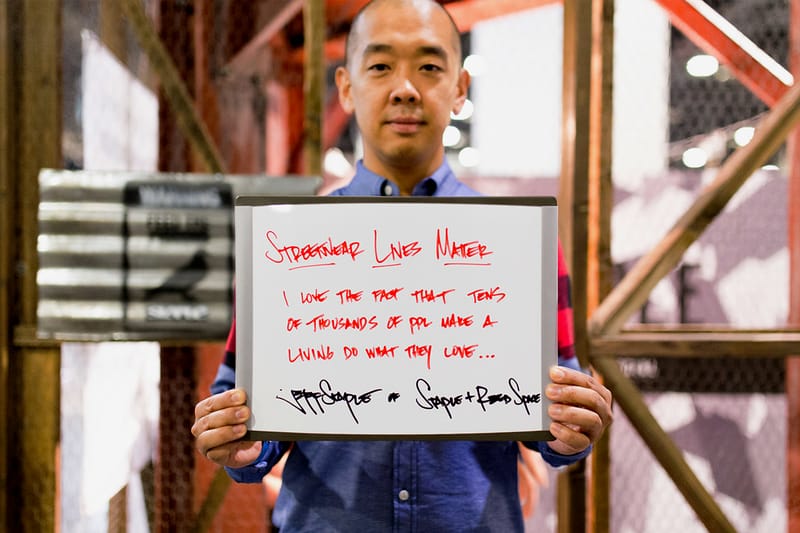 Streetwear Lives Matter
I love the fact that tens
of thousands of ppl make a
living do what they love...
jeffstaple of Staple + Reed Space